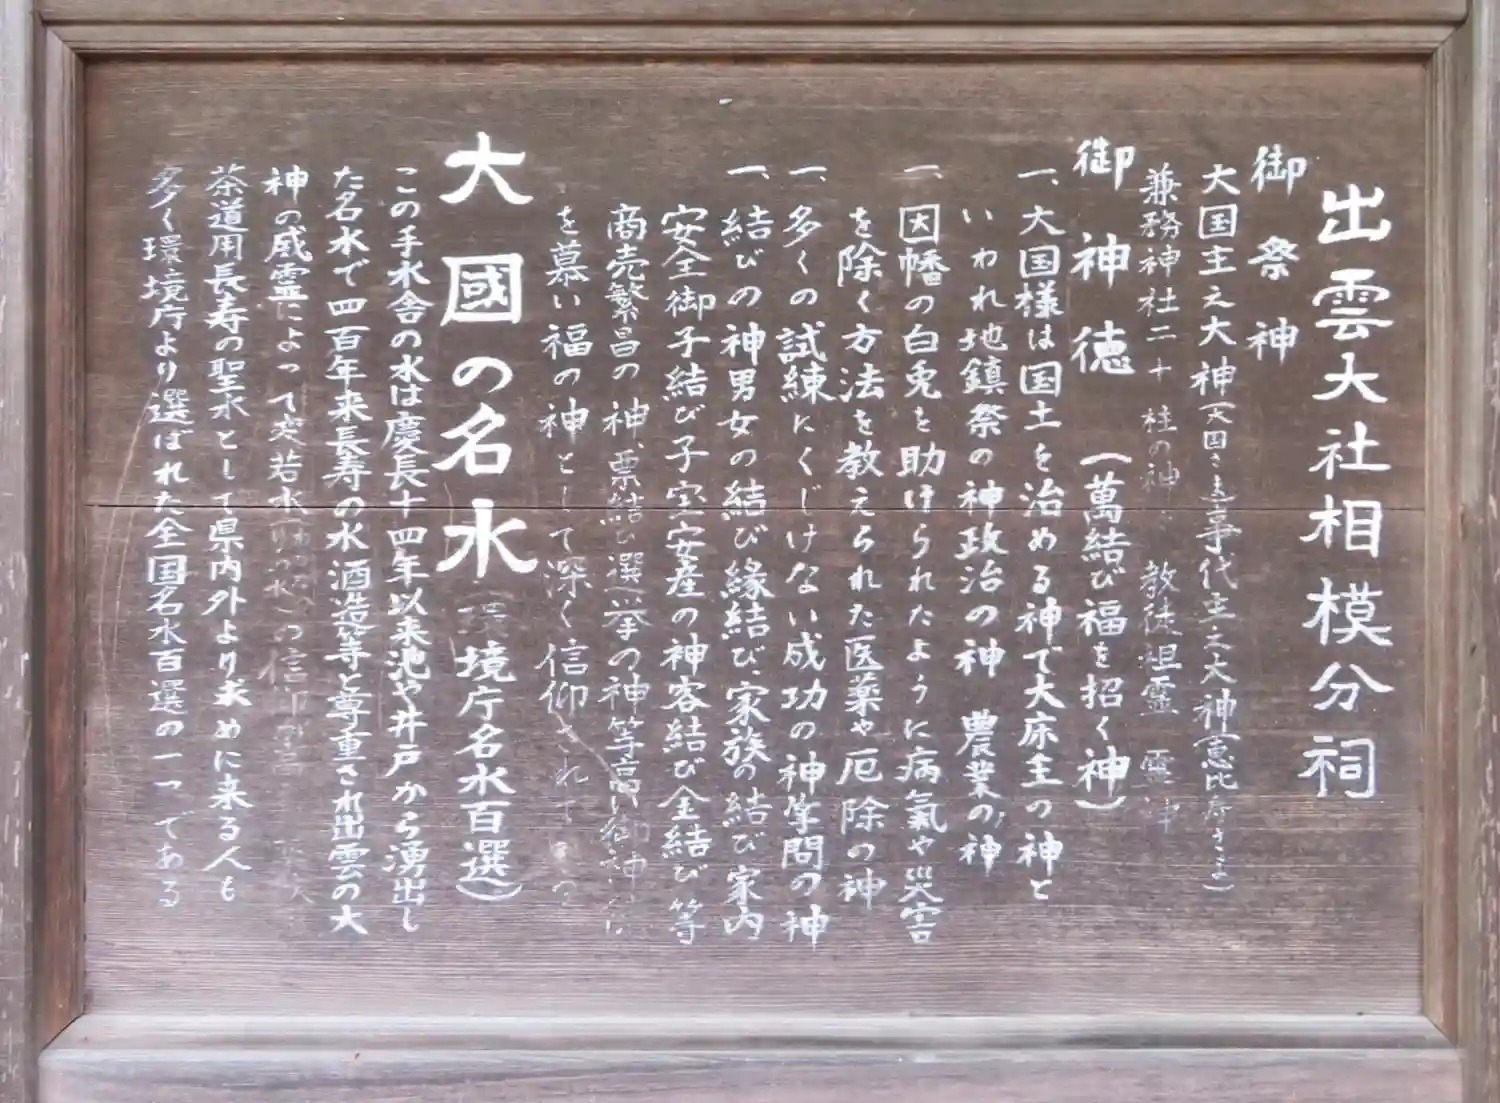 出雲大社相模分祠
御祭神
大国主之大神(大国さま)事代主之大神(恵比寿さま)
兼務神社二十 柱の神々 教徒祖霊 霊神
御神徳 (萬結び福を招く神)
一、大国様は国土を治める神で大床主の神と
いわれ地鎮祭の神政治の神 農業の神
一、因幡の白兎を助けられたように病氣や災害
を除く方法を教えられた医薬や厄除の神
一、多くの試練にくじけない成功の神学問の神
一、結びの神男女の結び縁結び家族の結び家内
安全御子結び子宝安産の神客結び金結び等
商売繁昌の神、票結び選挙の神等高い御神
を慕い福の神として深く信仰されて
大國の名水 (環境庁名水百選)
この手水舎の水は慶長十四年以来池や井戸から湧出し
た名水で四百年来長寿の水酒造等と尊重され出雲の大
神の威霊によって変若水 の信仰
茶道用長寿の聖水として県内外より求めに来る人も
多く環境庁より選ばれた全国名水百選の一つである